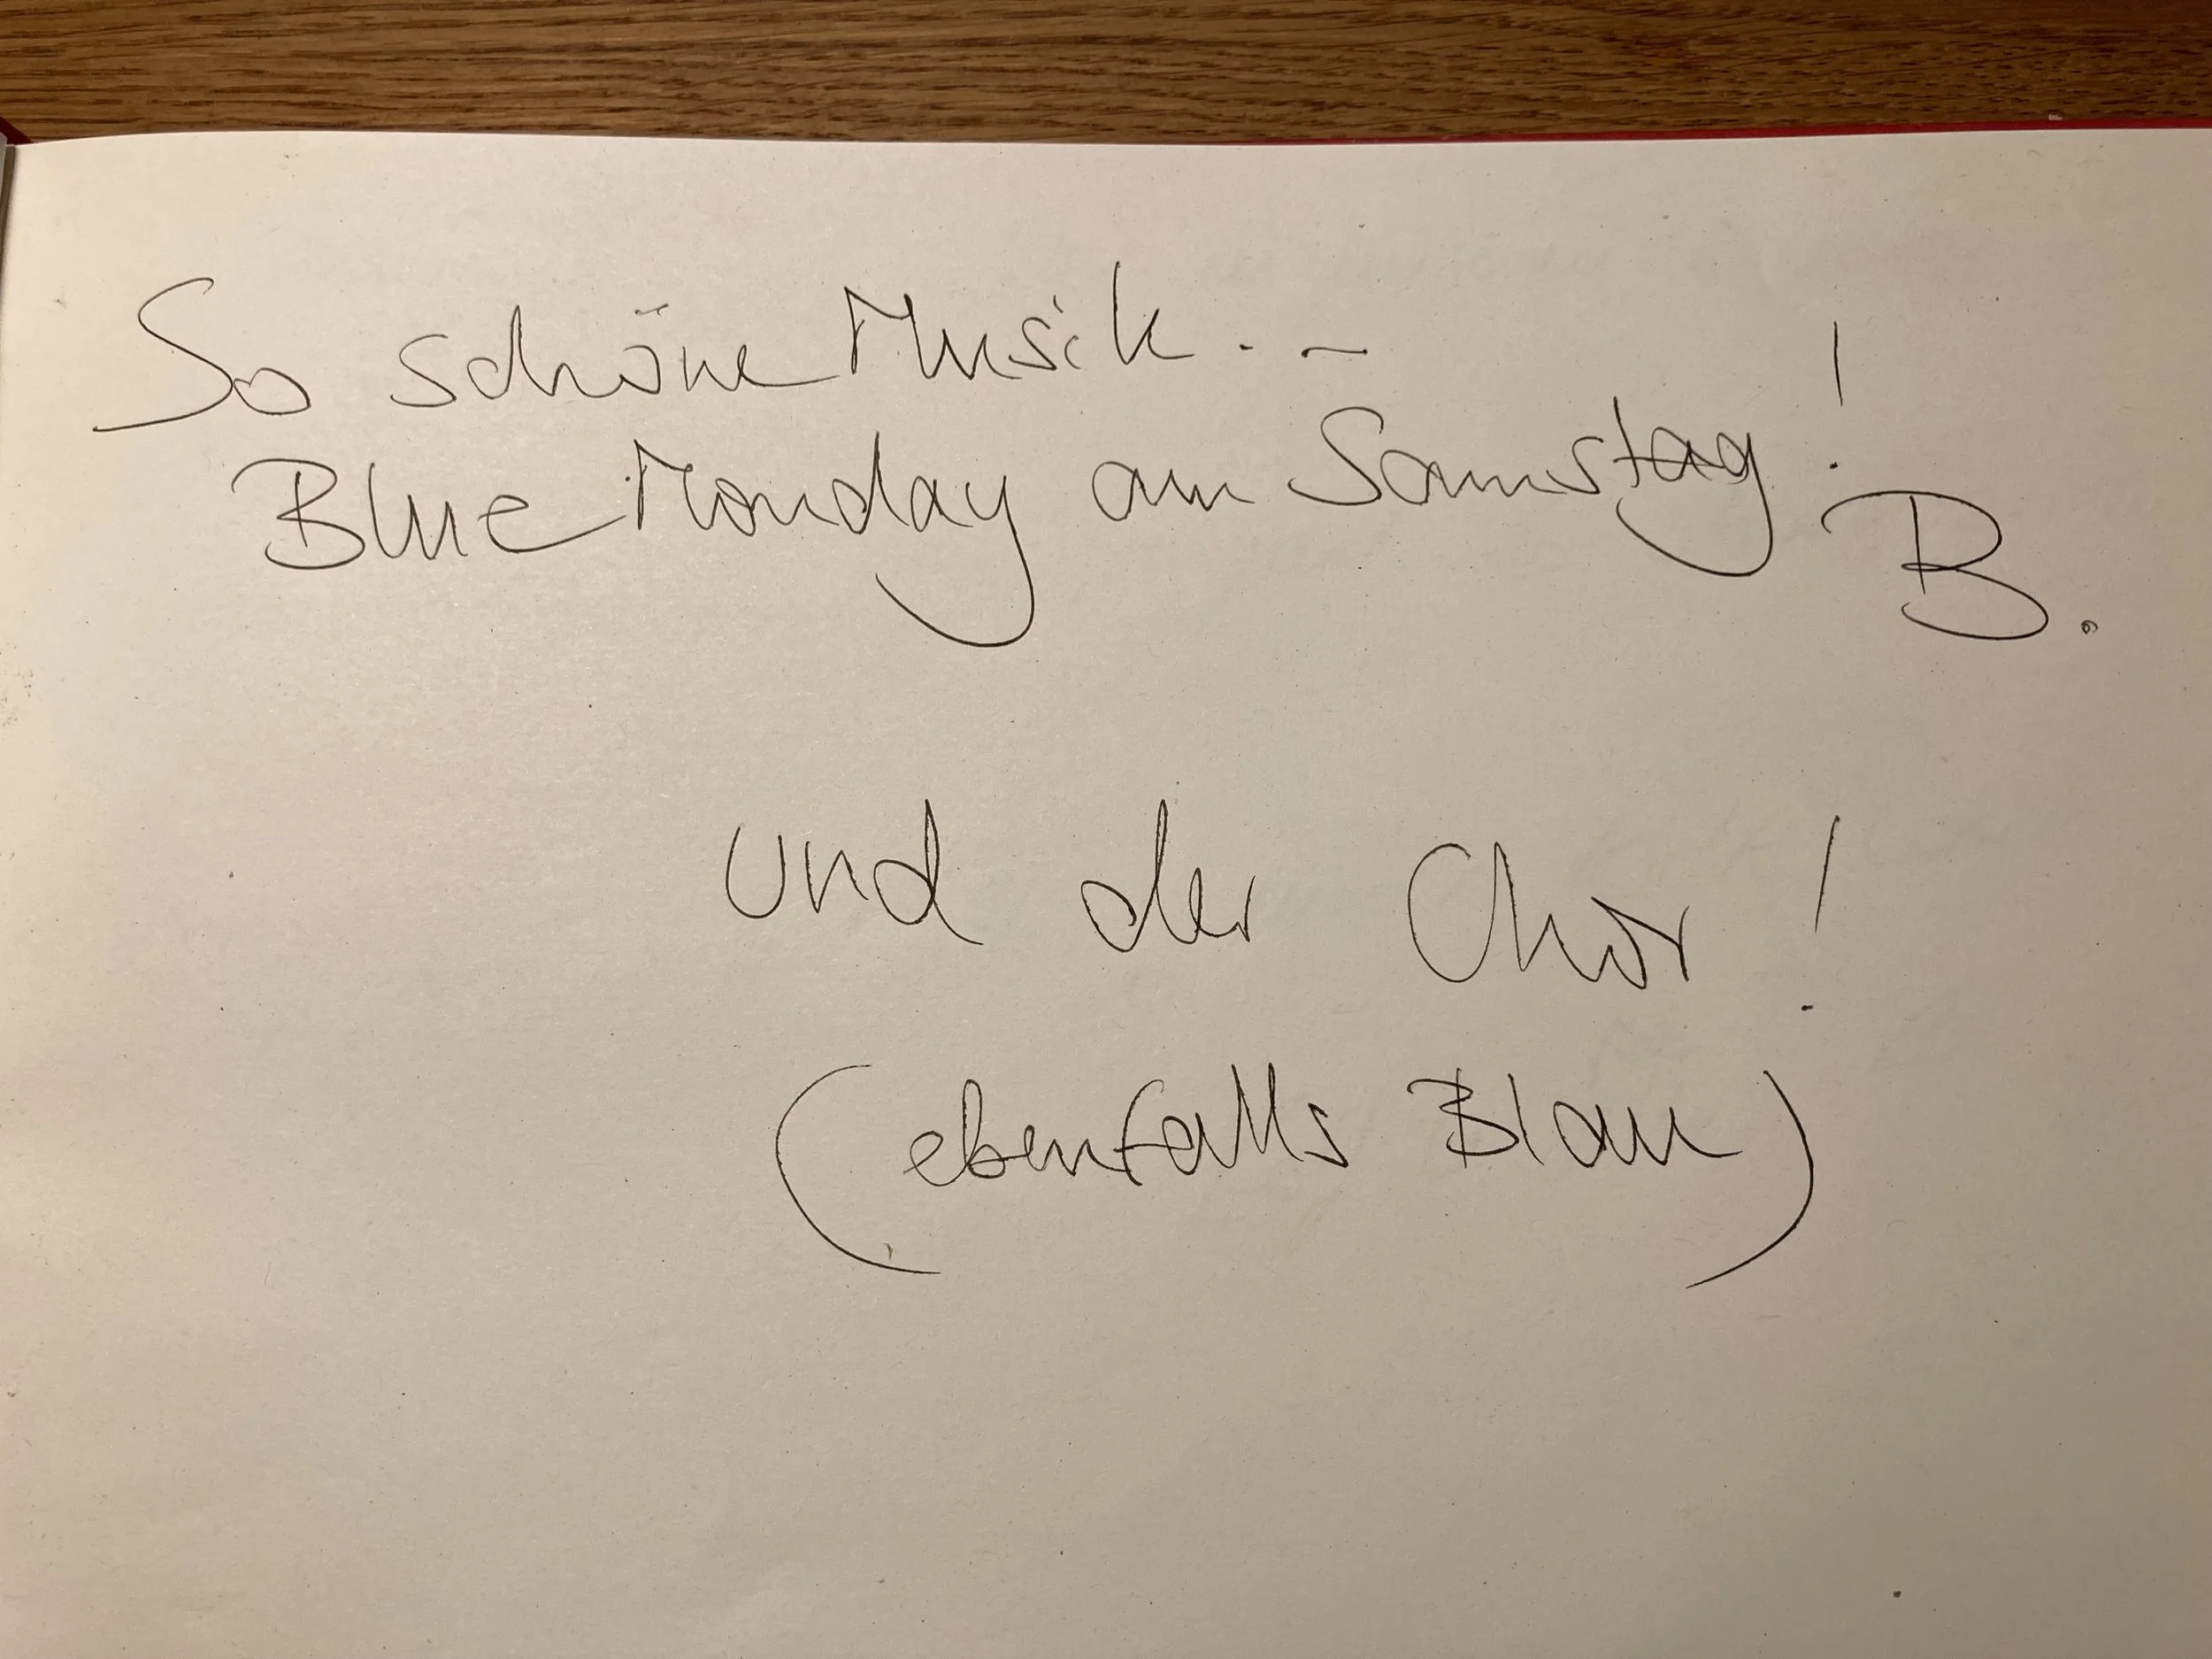 So schöne Musik...
Blue Monday am Samstag!
B.
und der Chor!
(ebenfalls Blau)